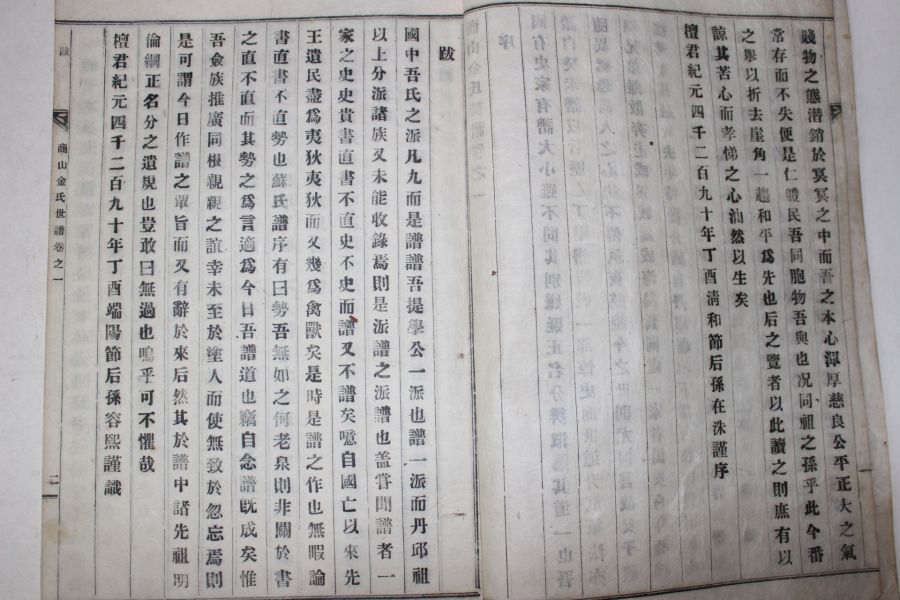 賤物之態潜銷於冥冥之中而吾之本心渾厚慈良公平正大之氣
常存而不失便是仁體民吾同胞物吾與也况同祖之孫乎此今番
之擧以折去崖角一趨和平爲先也后之覽者以此讀之則庶有以
諒其苦心而孝悌之心油然以生矣
檀君紀元四千二百九十年丁酉淸和節后孫在洙謹序
跋
國中吾氏之派凡九而是譜譜吾提學公一派也譜一派而丹邱祖
以上分派諸族又未能收錄焉則是派譜之派譜也盖嘗聞譜者一
家之史史貴書直書不直史不史而譜又不譜矣噫自國亡以來先
王遺民盡爲夷狄夷狄而又幾爲禽獸矣是時是譜之作也無暇論
書直書不直勢也蘇氏譜序有曰勢吾無如之何老泉則非關於書
之直不直而其勢之爲言適爲今日吾譜道也竊自念譜旣成矣惟
吾僉族推廣同根親親之誼幸未至於塗人而使無致於忽忘焉則
是可謂今日作譜之單旨而又有辭於來后然其於譜中諸先祖明
倫綱正名分之遺規也豈敢曰無過也嗚乎可不懼哉
檀君紀元四千二百九十年丁酉端陽節后孫容熙謹識
跋
商山金氏世譜卷之一
二